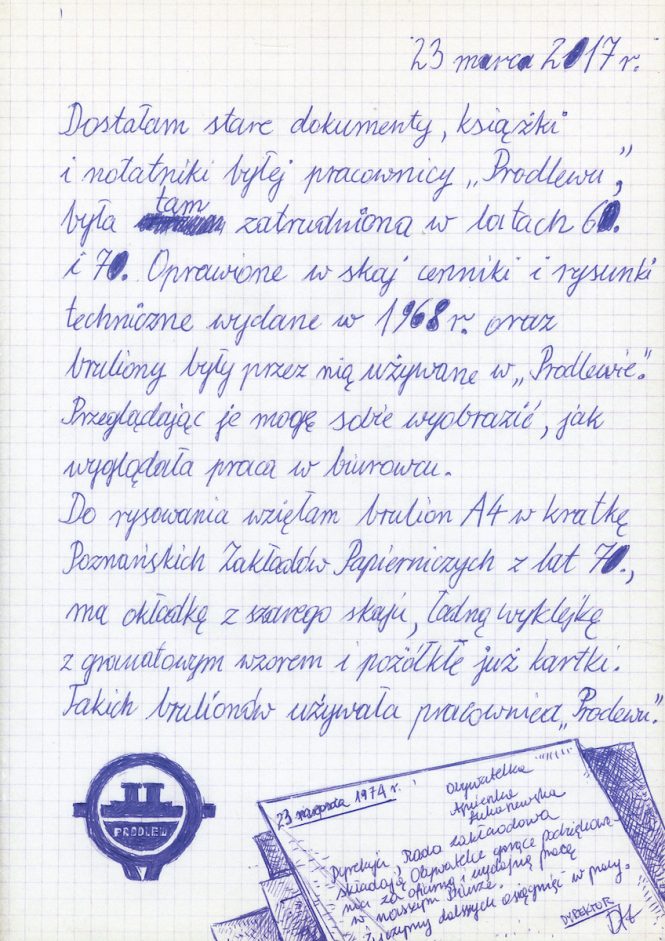 23 marca 2017 r.
Dostałam stare dokumenty, książki
i notatniki byłej pracownicy „Prodlewu”,
była tam zatrudniona w latach 60.
i 70. Oprawione w skaj cenniki i rysunki
techniczne wydane w 1968 r. oraz
bruliony były przez nią używane w „Prodlewie”.
Przeglądając je mogę sobie wyobrazić, jak
wyglądała praca w biurowcu.
Do rysowania wzięłam brulion A4 w kratkę
Poznańskich Zakładów Papierniczych z lat 70.,
ma okładkę z szarego skaju, ładną wyklejkę
z granatowym wzorem i pożółkłe już kartki.
Takich brulionów używała pracownica „Prodewu”.
PRODLEW
23 sierpnia 1974 r.
Obywatelka
Agnieszka
Dyrekcja, Rada zakładowa
składają Obywatelce gorące podziękowa-
nia za ofiarną i wydajną pracę
w naszym Biurze.
Życzymy dalszych osiągnięć w pracy.
DYREKTOR